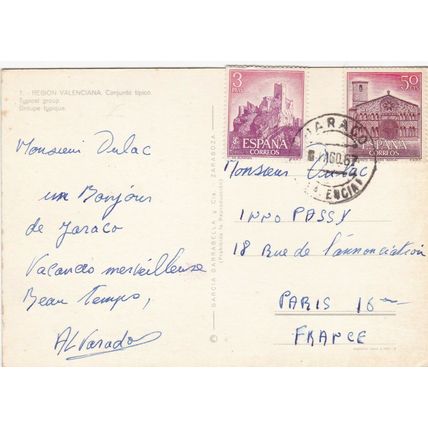 1. - REGION VALENCIANA. Conjunto típico.
Typical group.
Groupe typique.
Monsieur Dulac
un Bonjour
de Jaraco
Vacances merveilleuse
Beau Temps,
ALVarado
GARCIA GARRABELLA Y Cía. ZARAGOZA
3
PTAS
ESPAÑA
CORREOS
50
ESPAÑA
CORREOS
JARACO
AGO.67
VALENCIA
Monsieur Dulac
INNO PASSY
18 Rue de l'annonciation
PARIS 16
FRANCE